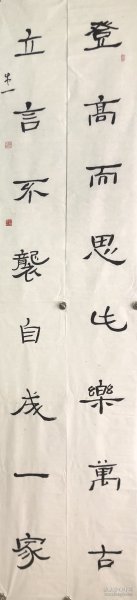 登高而思屯樂萬古
立言不襲自成一家